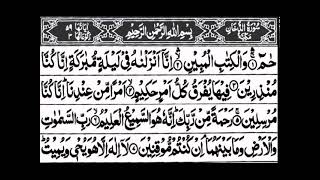 سُوْرَةُ الدُّخَانِ بِسْمِ اللّٰهِ الرَّحْمٰنِ الرَّحِيْمِ اٰيَاتُهَا ٥٩
حٰمٓ ۚ وَالْكِتٰبِ الْمُبِيْنِ ۙ اِنَّاۤ اَنْزَلْنٰهُ فِيْ لَيْلَةٍ مُّبٰرَكَةٍ اِنَّا كُنَّا
مُنْذِرِيْنَ فِيْهَا يُفْرَقُ كُلُّ اَمْرٍ حَكِيْمٍ ۙ اَمْرًا مِّنْ عِنْدِنَا ؕ اِنَّا كُنَّا
مُرْسِلِيْنَ ۚ رَحْمَةً مِّنْ رَّبِّكَ ؕ اِنَّهٗ هُوَ السَّمِيْعُ الْعَلِيْمُ ۙ رَبِّ السَّمٰوٰتِ
وَالْاَرْضِ وَمَا بَيْنَهُمَا ۘ اِنْ كُنْتُمْ مُّوْقِنِيْنَ لَاۤ اِلٰهَ اِلَّا هُوَ يُحْيٖ وَيُمِيْتُ ؕ